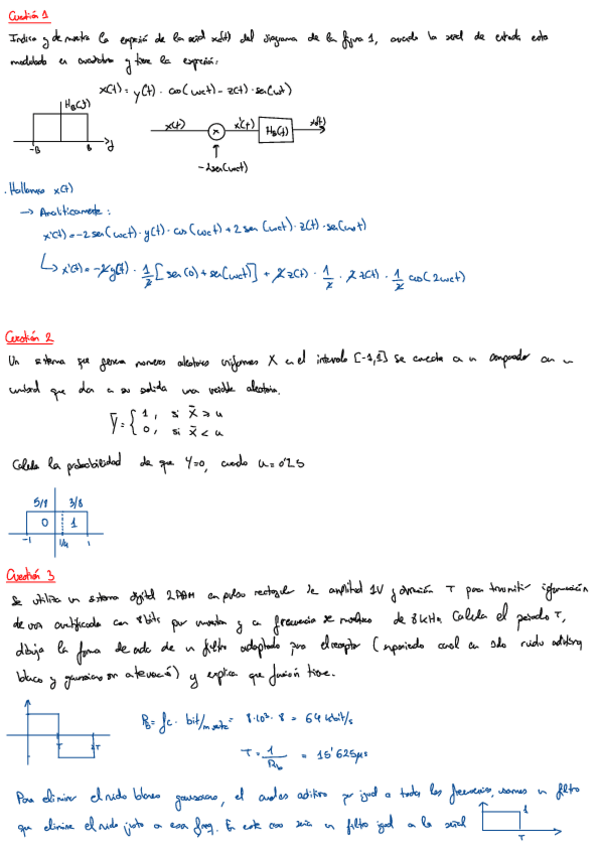 Cuestión 1
Indica y demuestra la expresión de la señal x₀(t) del diagrama de la figura 1, cuando la señal de entrada esta
modulada en cuadratura y tiene la expresión:
x(t) = y(t) · cos(wct) - z(t) · sen(wct)
H_B(f)
-B
B
f
x(t)
x
x'(t)
H_B(f)
x₀(t)
-2sen(wct)
. Hallamos x'(t)
→ Analíticamente:
x'(t) = -2 sen(wct) · y(t) · cos(wct) + 2 sen(wct) · z(t) · sen(wct)
↳ x'(t) = -2 y(t) · 1/2 [sen(0) + sen(wct)] + 2 z(t) · 1/2 · 2 z(t) · 1/2 cos(2wct)
Cuestión 2
Un sistema que genera numeros aleatorios uniformes X en el intervalo [-1,1] se conecta a un comparador con un
umbral que da a su salida una variable aleatoria.
Y = { 1, si X ≥ u
0, si X < u
Calcula la probabilidad de que Y=0, cuando u=0'25
5/8 3/8
0 1
-1 1
Cuestión 3
Se utiliza un sistema digital 2PAM en pulso rectangular de amplitud 1V y duración T para transmitir información
de voz cuantificada con 8 bits por muestra y a frecuencia de muestreo de 8 kHz. Calcula el periodo T,
dibuja la forma de onda de un filtro adaptado para el receptor (suponiendo canal con solo ruido aditivo
blanco y gaussiano sin atenuación) y explica que función tiene.
T
T
R_b = fc · bit/muestra = 8·10³ · 8 = 64 kbit/s
T = 1/R_b = 15'625μs
Para eliminar el ruido blanco gaussiano, el cual es aditivo por igual a todas las frecuencias, usamos un filtro
que elimine el ruido justo a esa freq. En este caso sería un filtro igual a la señal
1
T